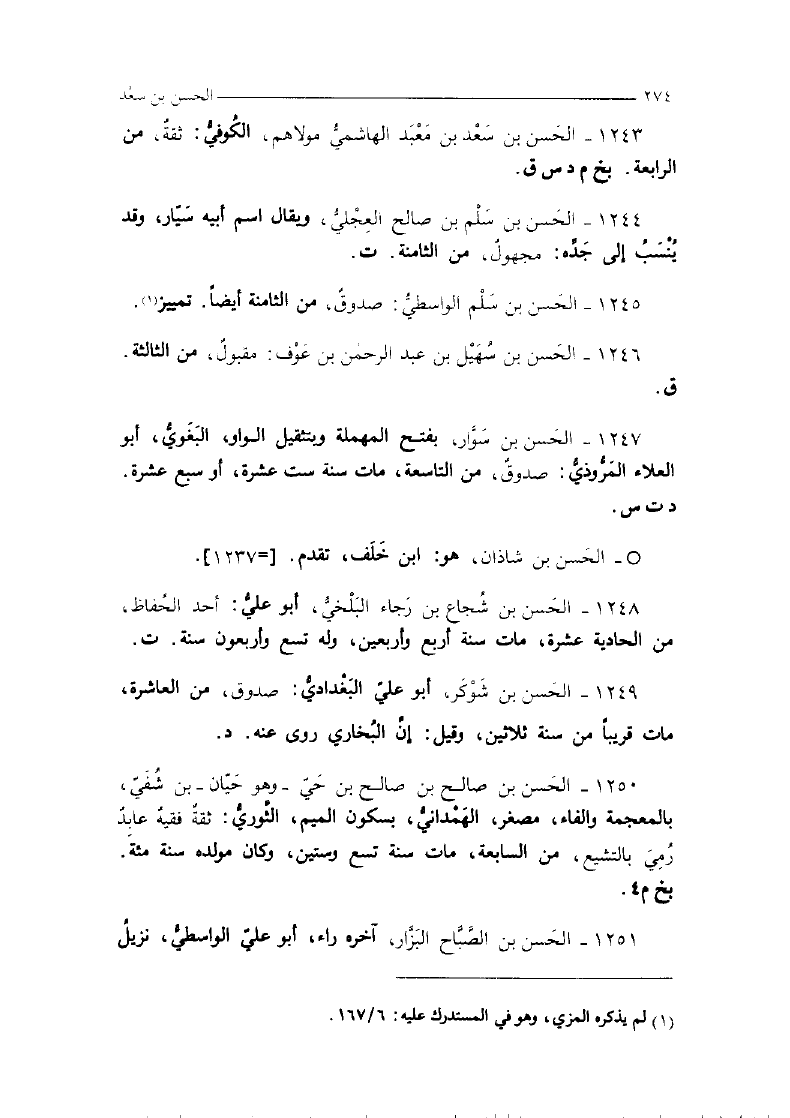 ٢٧٤ ــــــــــــــــــــ الحسن بن سعْد
١٢٤٣ ـ الحَسن بن سَعْد بن مَعْبَد الهاشميُّ مولاهم، الكُوفيُّ: ثقةٌ، من
الرابعة. بخ م د س ق.
١٢٤٤ ـ الحَسن بن سَلْم بن صالح العِجْليُّ، ويقال اسم أبيه سَيّار، وقد
يُنْسَبُ إلى جَدِّه: مجهولٌ، من الثامنة. ت.
١٢٤٥ ـ الحَسن بن سَلْم الواسطيُّ: صدوقٌ، من الثامنة أيضاً. تمييز(١).
١٢٤٦ ـ الحَسن بن سُهَيْل بن عبد الرحمٰن بن عَوْف: مقبولٌ، من الثالثة.
ق.
١٢٤٧ ـ الحَسن بن سَوَّار، بفتـح المهملة وبتثقيل الـواو، البَغَويُّ، أبو
العلاء المَرُّوذيُّ: صدوقٌ، من التاسعة، مات سنة ست عشرة، أو سبع عشرة.
د ت س.
○ ـ الحَسن بن شاذان، هو: ابن خَلَف، تقدم. [=١٢٣٧].
١٢٤٨ ـ الحَسن بن شُجاع بن رَجاء البَلْخيُّ، أبو عليُّ: أحد الحُفاظ،
من الحادية عشرة، مات سنة أربع وأربعين، وله تسع وأربعون سنة. ت.
١٢٤٩ ـ الحَسن بن شَوْكَر، أبو عليّ البَغْداديُّ: صدوق، من العاشرة،
مات قريباً من سنة ثلاثين، وقيل: إنَّ البُخاري روى عنه. د.
١٢٥٠ ـ الحَسن بن صالـح بن صالـح بن حَيّ ـ وهو حَيّان ـ بن شُفَيّ،
بالمعجمة والفاء، مصغر، الهَمْدانيُّ، بسكون الميم، الثَّوريُّ: ثقةٌ فقيهٌ عابِدٌ
رُمِيَ بالتشيع، من السابعة، مات سنة تسع وستين، وكان مولده سنة مئة.
بخ م٤.
١٢٥١ ـ الحَسن بن الصَّبَّاح البَزَّار، آخره راء، أبو عليّ الواسطيُّ، نزيلُ
(١) لم يذكره المزي، وهو في المستدرك عليه: ١٦٧/٦.